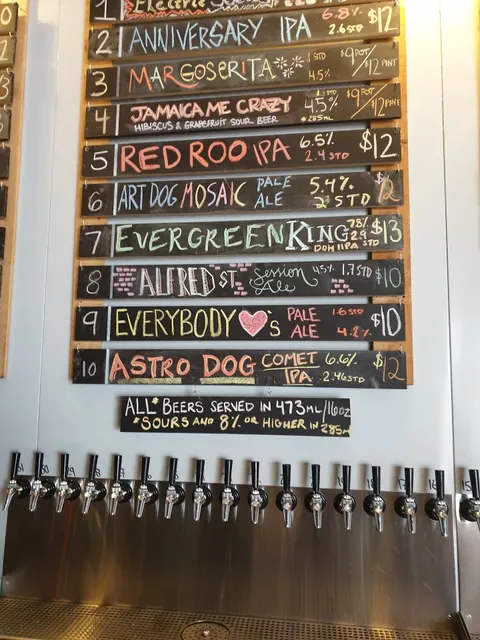 1
2 ANNIVERSARY IPA 6.8% 2.6 STD $12
3 MARGOSERITA 1 STD 4.5% $9 POT/$12 PINT
4 JAMAICA ME CRAZY 1 STD 4.5% *285ML $9 POT/$12 PINT
HIBISCUS & GRAPEFRUIT SOUR BEER
5 RED ROO IPA 6.5% 2.4 STD $12
6 ART DOG MOSAIC PALE ALE 5.4% 2 STD
7 EVERGREEN KING 7.8% 2.9 STD $13
DDH IIPA
8 ALFRED ST Session Ale 4.5% 1.7 STD $10
9 EVERYBODY ♥'S PALE ALE 1.6 STD 4.2% $10
10 ASTRO DOG COMET IPA 6.6% 2.46 STD $12
ALL* BEERS SERVED IN 473ML/16OZ
*SOURS AND 8% OR HIGHER IN 285ML